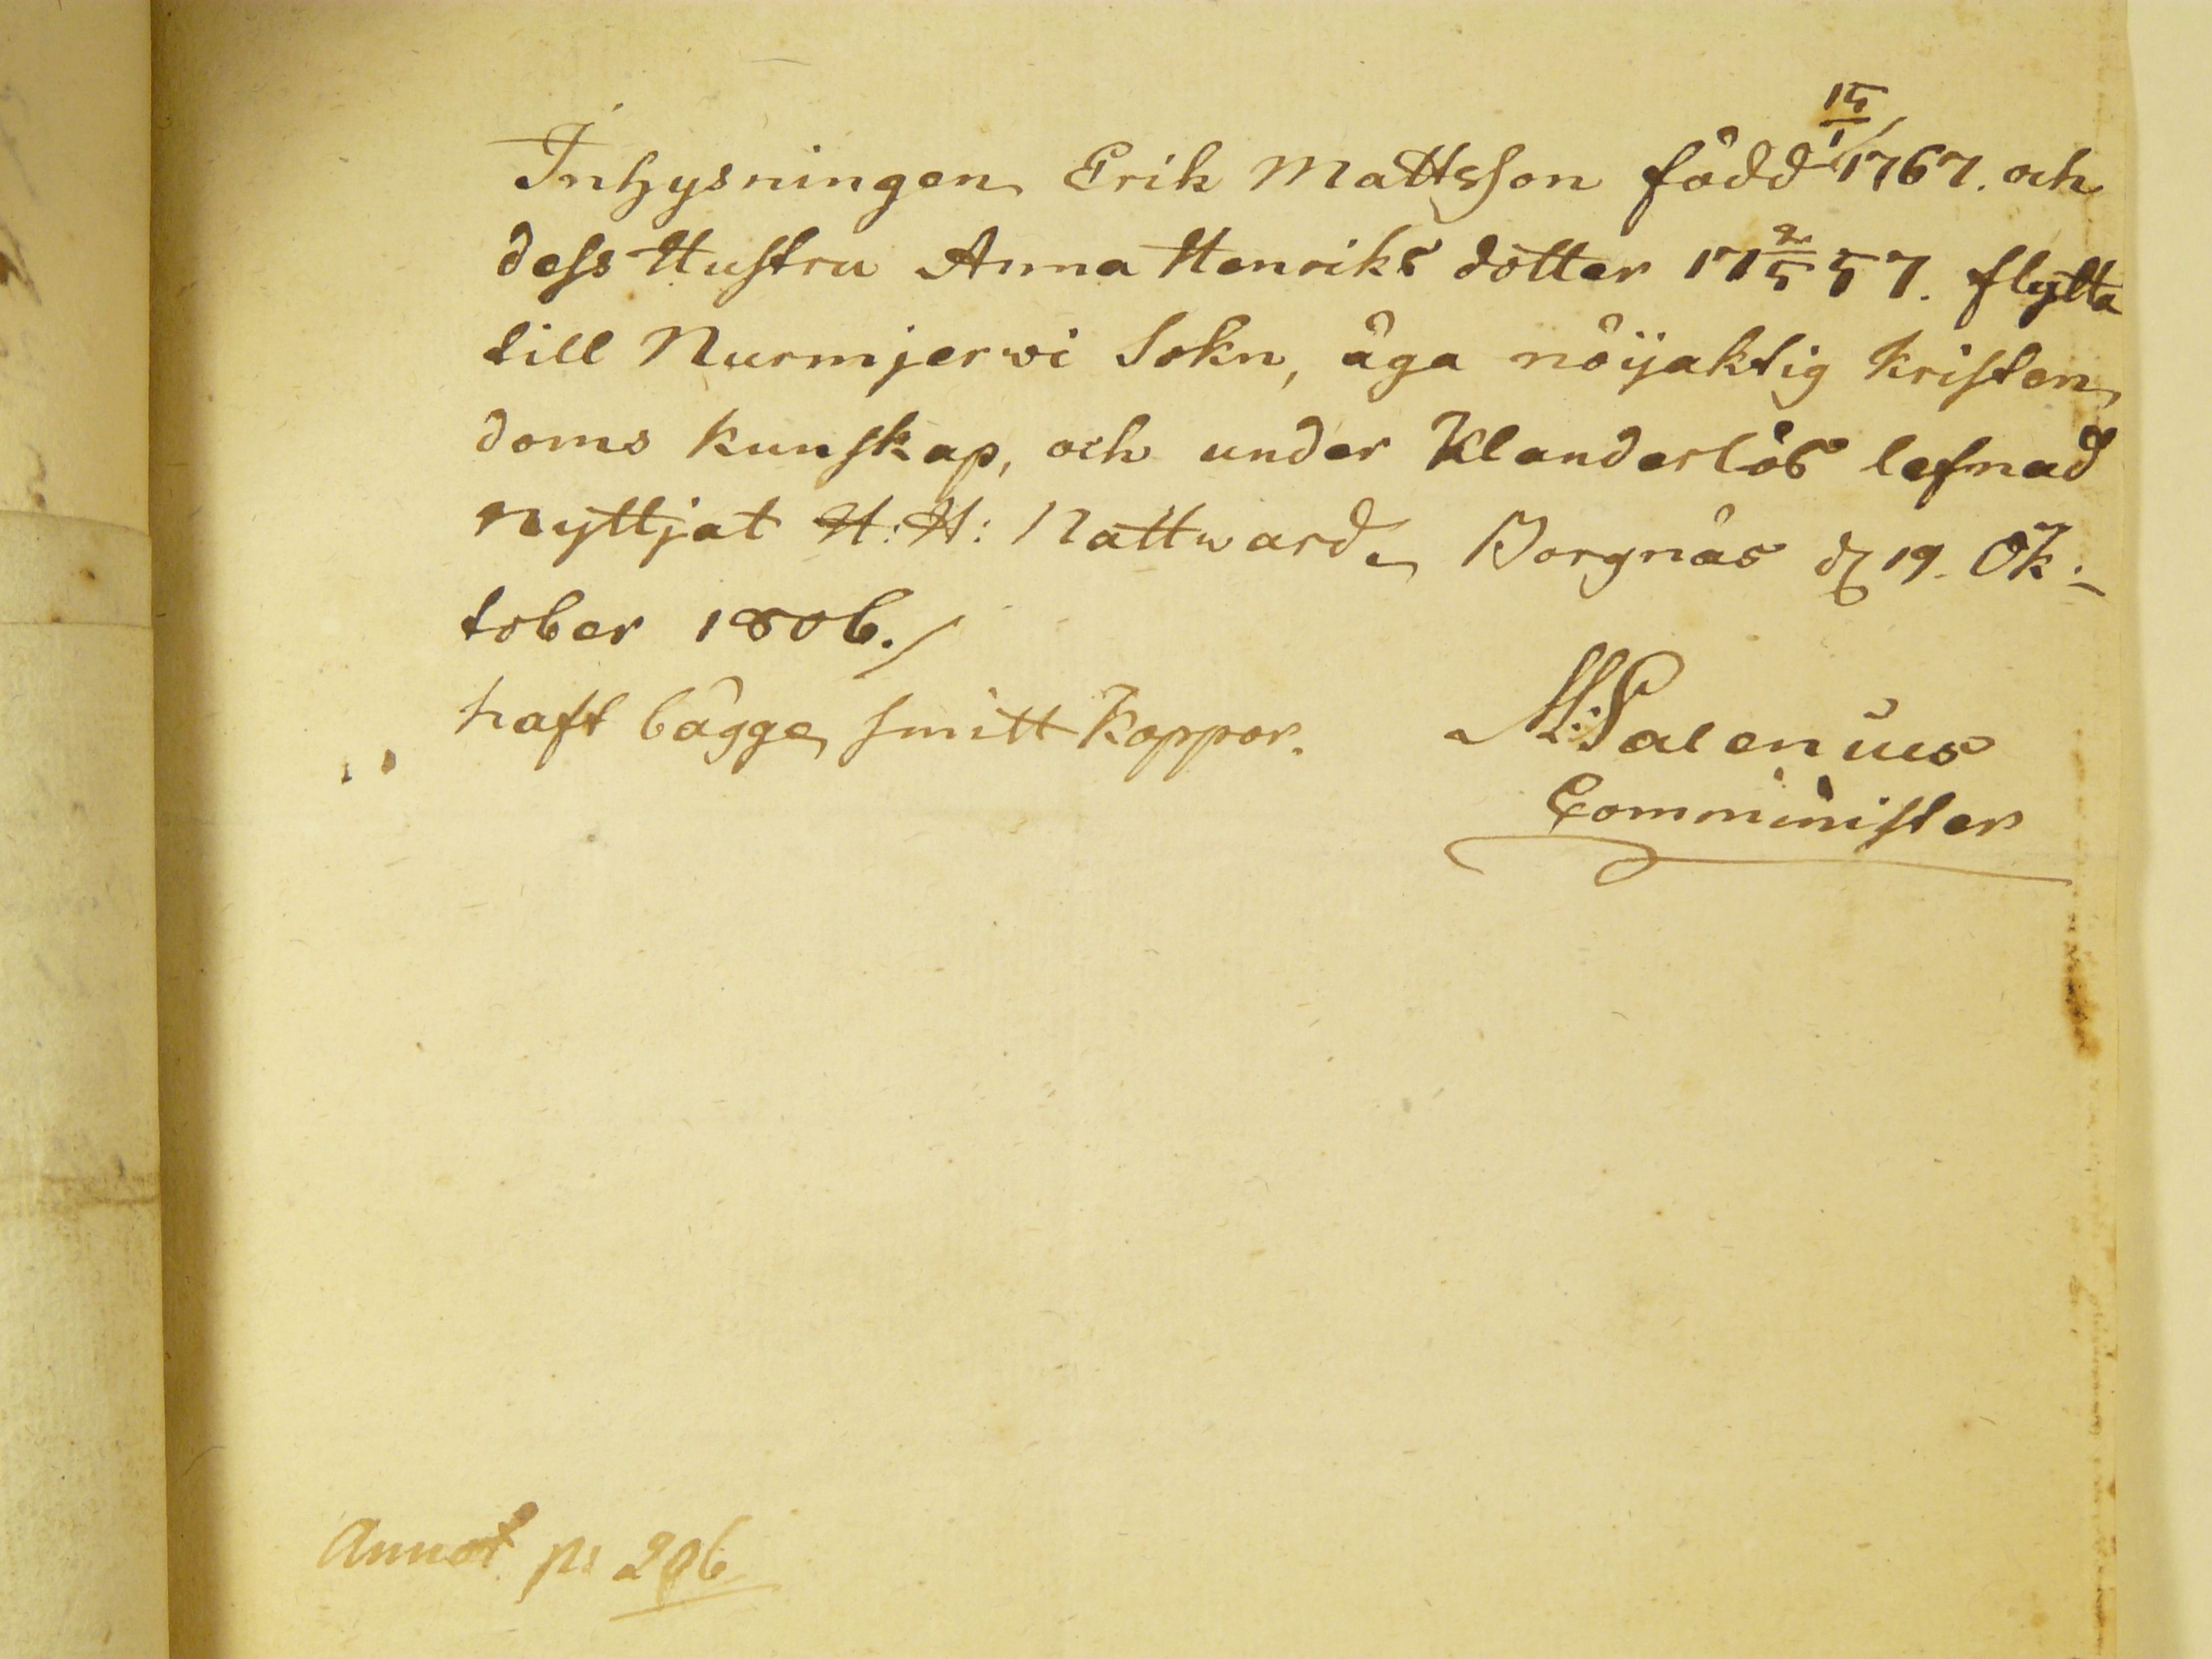 Inhysningen Erik Mattsson född 15/1 1767. och
dess Hustru Anna Henriks dotter 17 2/5 57. flytta
till Nurmjerwi Sokn, äga nöijaktig kristen
doms kunskap, och under klanderlös lefnad
nyttjat H: H: Nattward, Borgnäs d 19. Ok:
tober 1806./
haft bägge smittkoppor.
M: Palenius
Comminister
Annot. p: 206